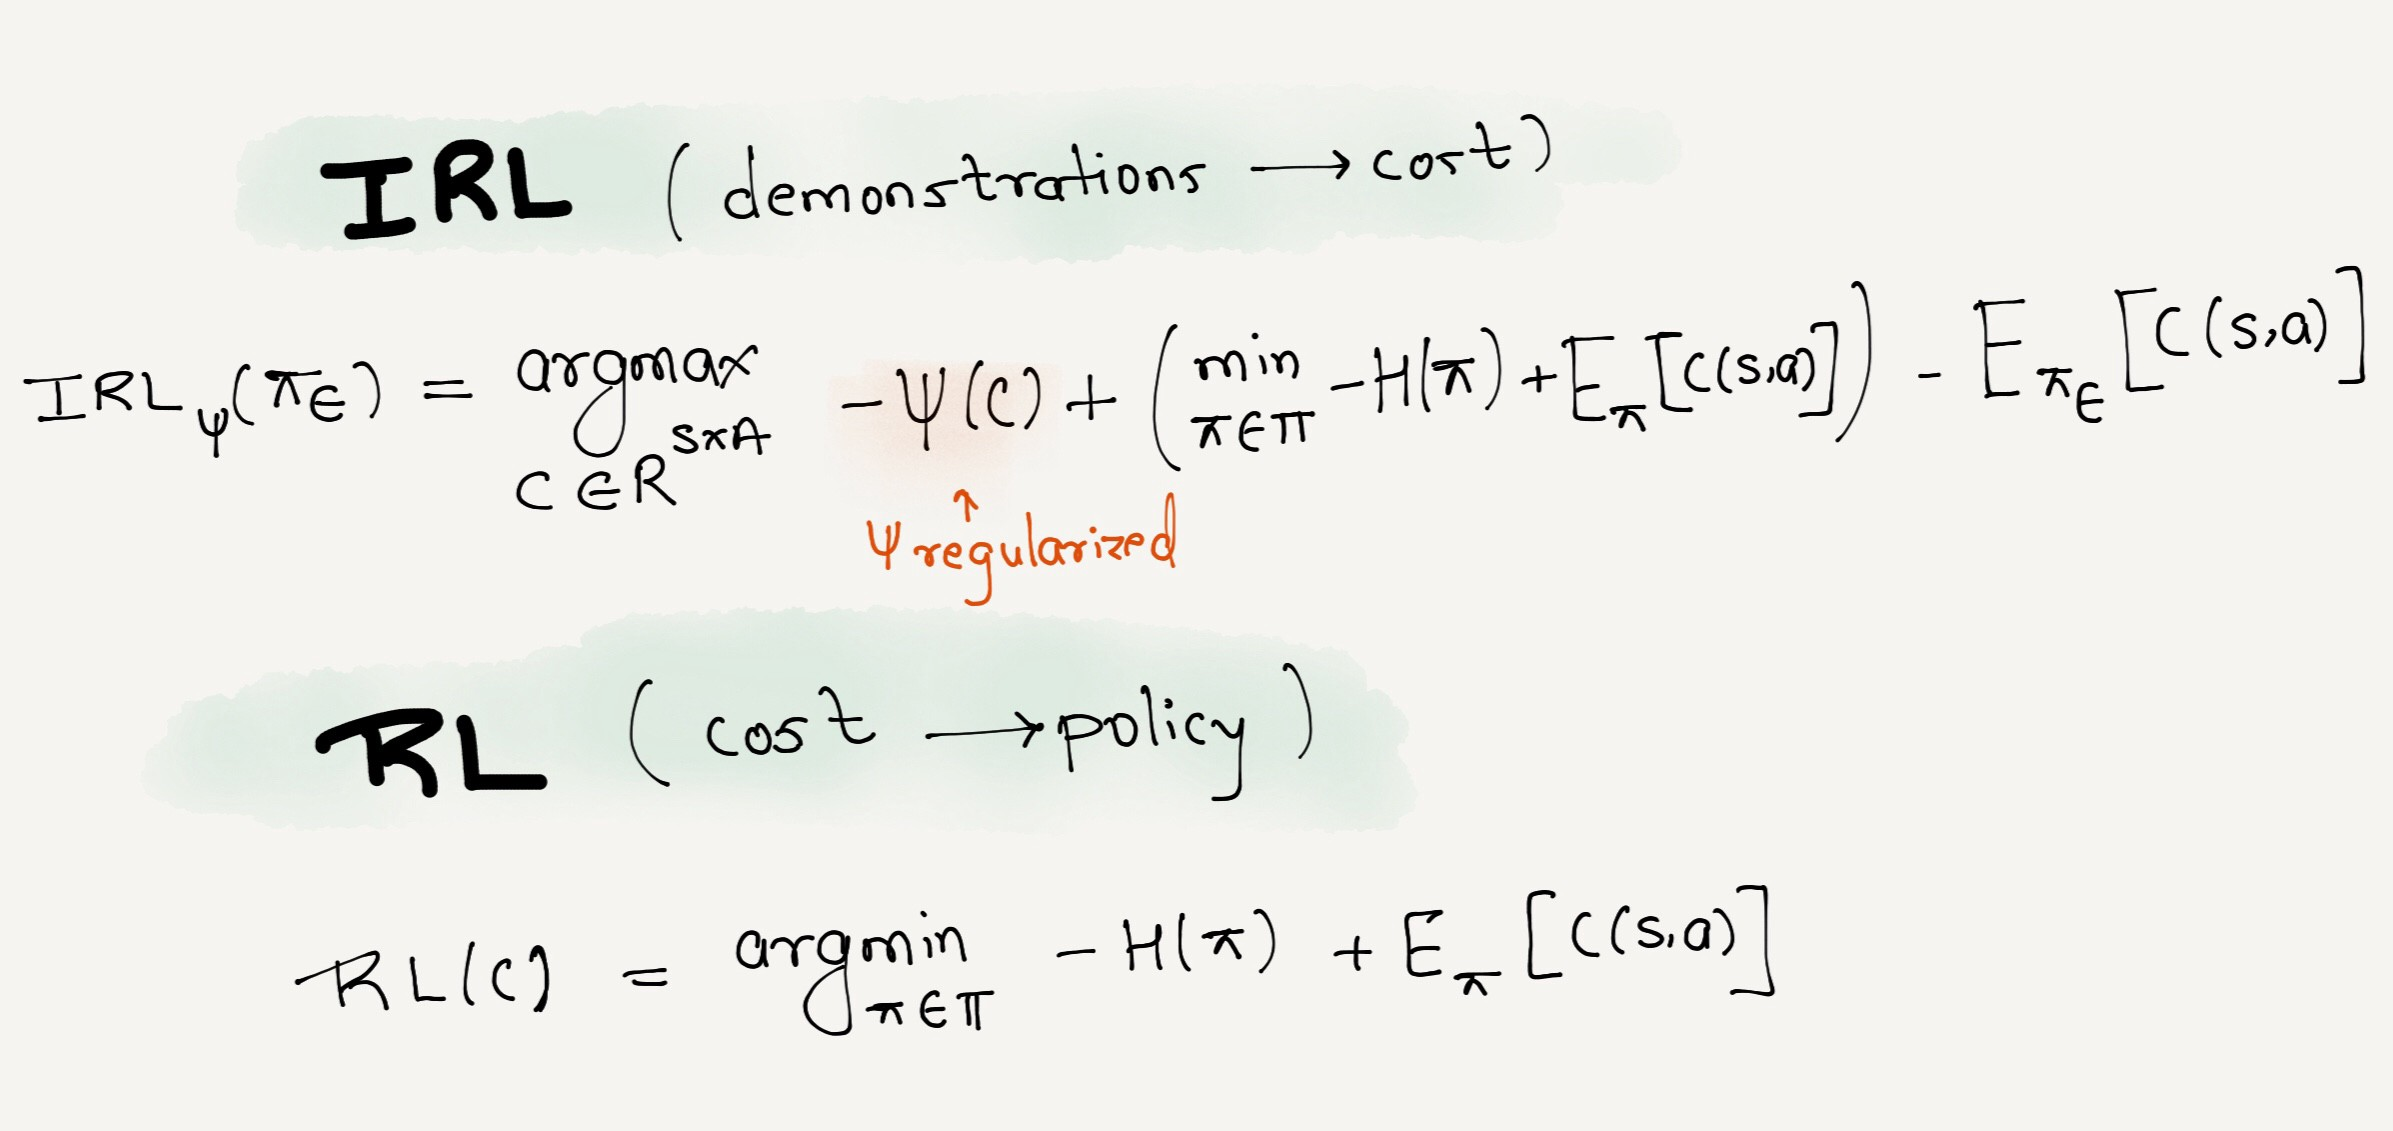 IRL (demonstrations → cost)
IRL_ψ(π_E) = argmax_{C ∈ R^{S×A}} -ψ(C) + (min_{π∈Π} -H(π) + E_π[C(s,a)]) - E_{π_E}[C(s,a)]
↑
ψ regularized
RL (cost → policy)
RL(C) = argmin_{π∈Π} -H(π) + E_π[C(s,a)]